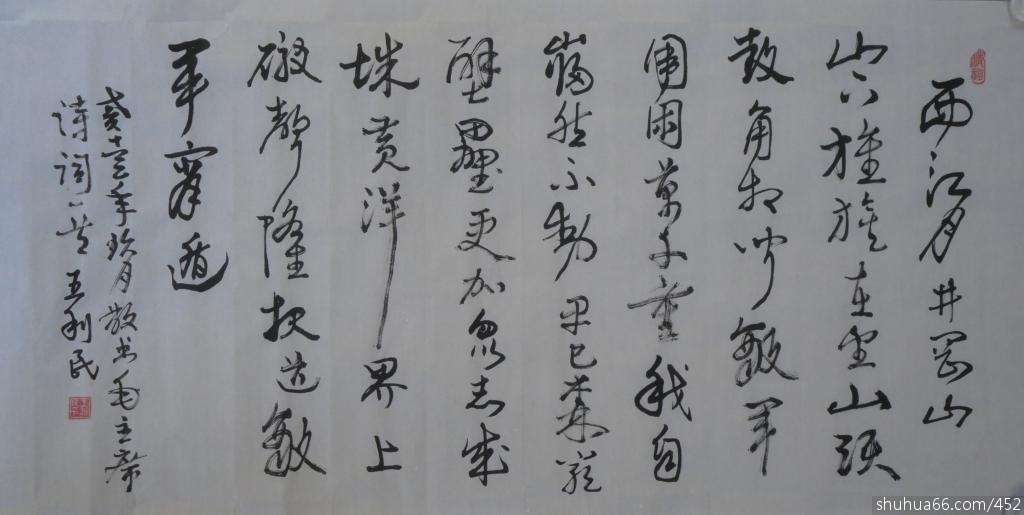 西江月井岡山
山下旌旗在望山頭
鼓角相闻敵军
圍困萬千重我自
巋然不動早已森嚴
壁壘更加眾志成
城黄洋界上
礮聲隆报道敵
军宵遁
年玖月敬书毛主席
诗词一首 王利民
shuhua66.com/452